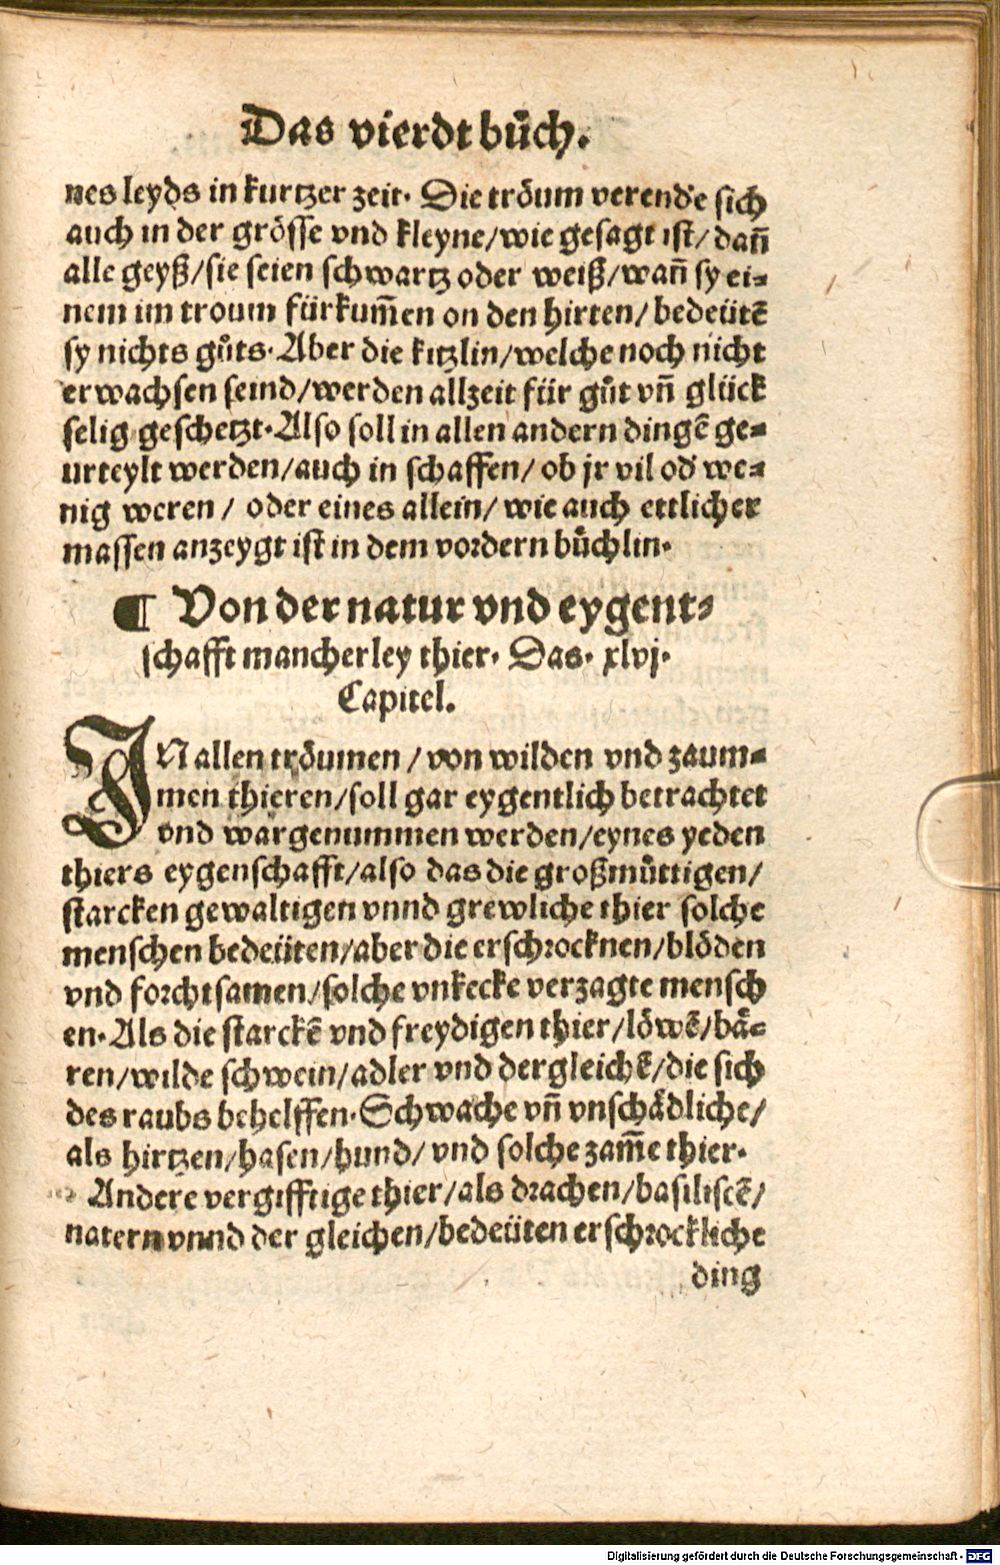 Das vierdt bůch.
nes leyds in kurtzer zeit. Die tröum verend'e sich
auch in der grösse vnd kleyne/wie gesagt ist/dañ
alle geyß/sie seien schwartz oder weiß/wañ sy ei⸗
nem im troum fürkum̃en on den hirten/bedeütẽ
sy nichts gůts. Aber die kitzlin/welche noch nicht
erwachsen seind/werden allzeit für gůt vñ glück
selig geschetzt. Also soll in allen andern dingẽ ge⸗
urteylt werden/auch in schaffen/ob jr vil od' we⸗
nig weren/ oder eines allein/ wie auch ettlicher
massen anzeygt ist in dem vordern bůchlin.
¶ Von der natur vnd eygent⸗
schafft mancherley thier. Das. xlvj.
Capitel.
IN allen tröumen / von wilden vnd zaum⸗
men thieren/soll gar eygentlich betrachtet
vnd wargenummen werden/eynes yeden
thiers eygenschafft/also das die großmůttigen/
starcken gewaltigen vnnd grewliche thier solche
menschen bedeüten/aber die erschrocknen/blöden
vnd forchtsamen/solche vnkecke verzagte mensch
en. Als die starckẽ vnd freydigen thier/löwẽ/bä⸗
ren/wilde schwein/adler vnd dergleichẽ/die sich
des raubs behelffen. Schwache vñ vnschädliche/
als hirtzen/hasen/hund/ vnd solche zam̃e thier.
Andere vergifftige thier/als drachen/basiliscẽ/
natern vnnd der gleichen/bedeüten erschrockliche
ding
Digitalisierung gefördert durch die Deutsche Forschungsgemeinschaft - DFG